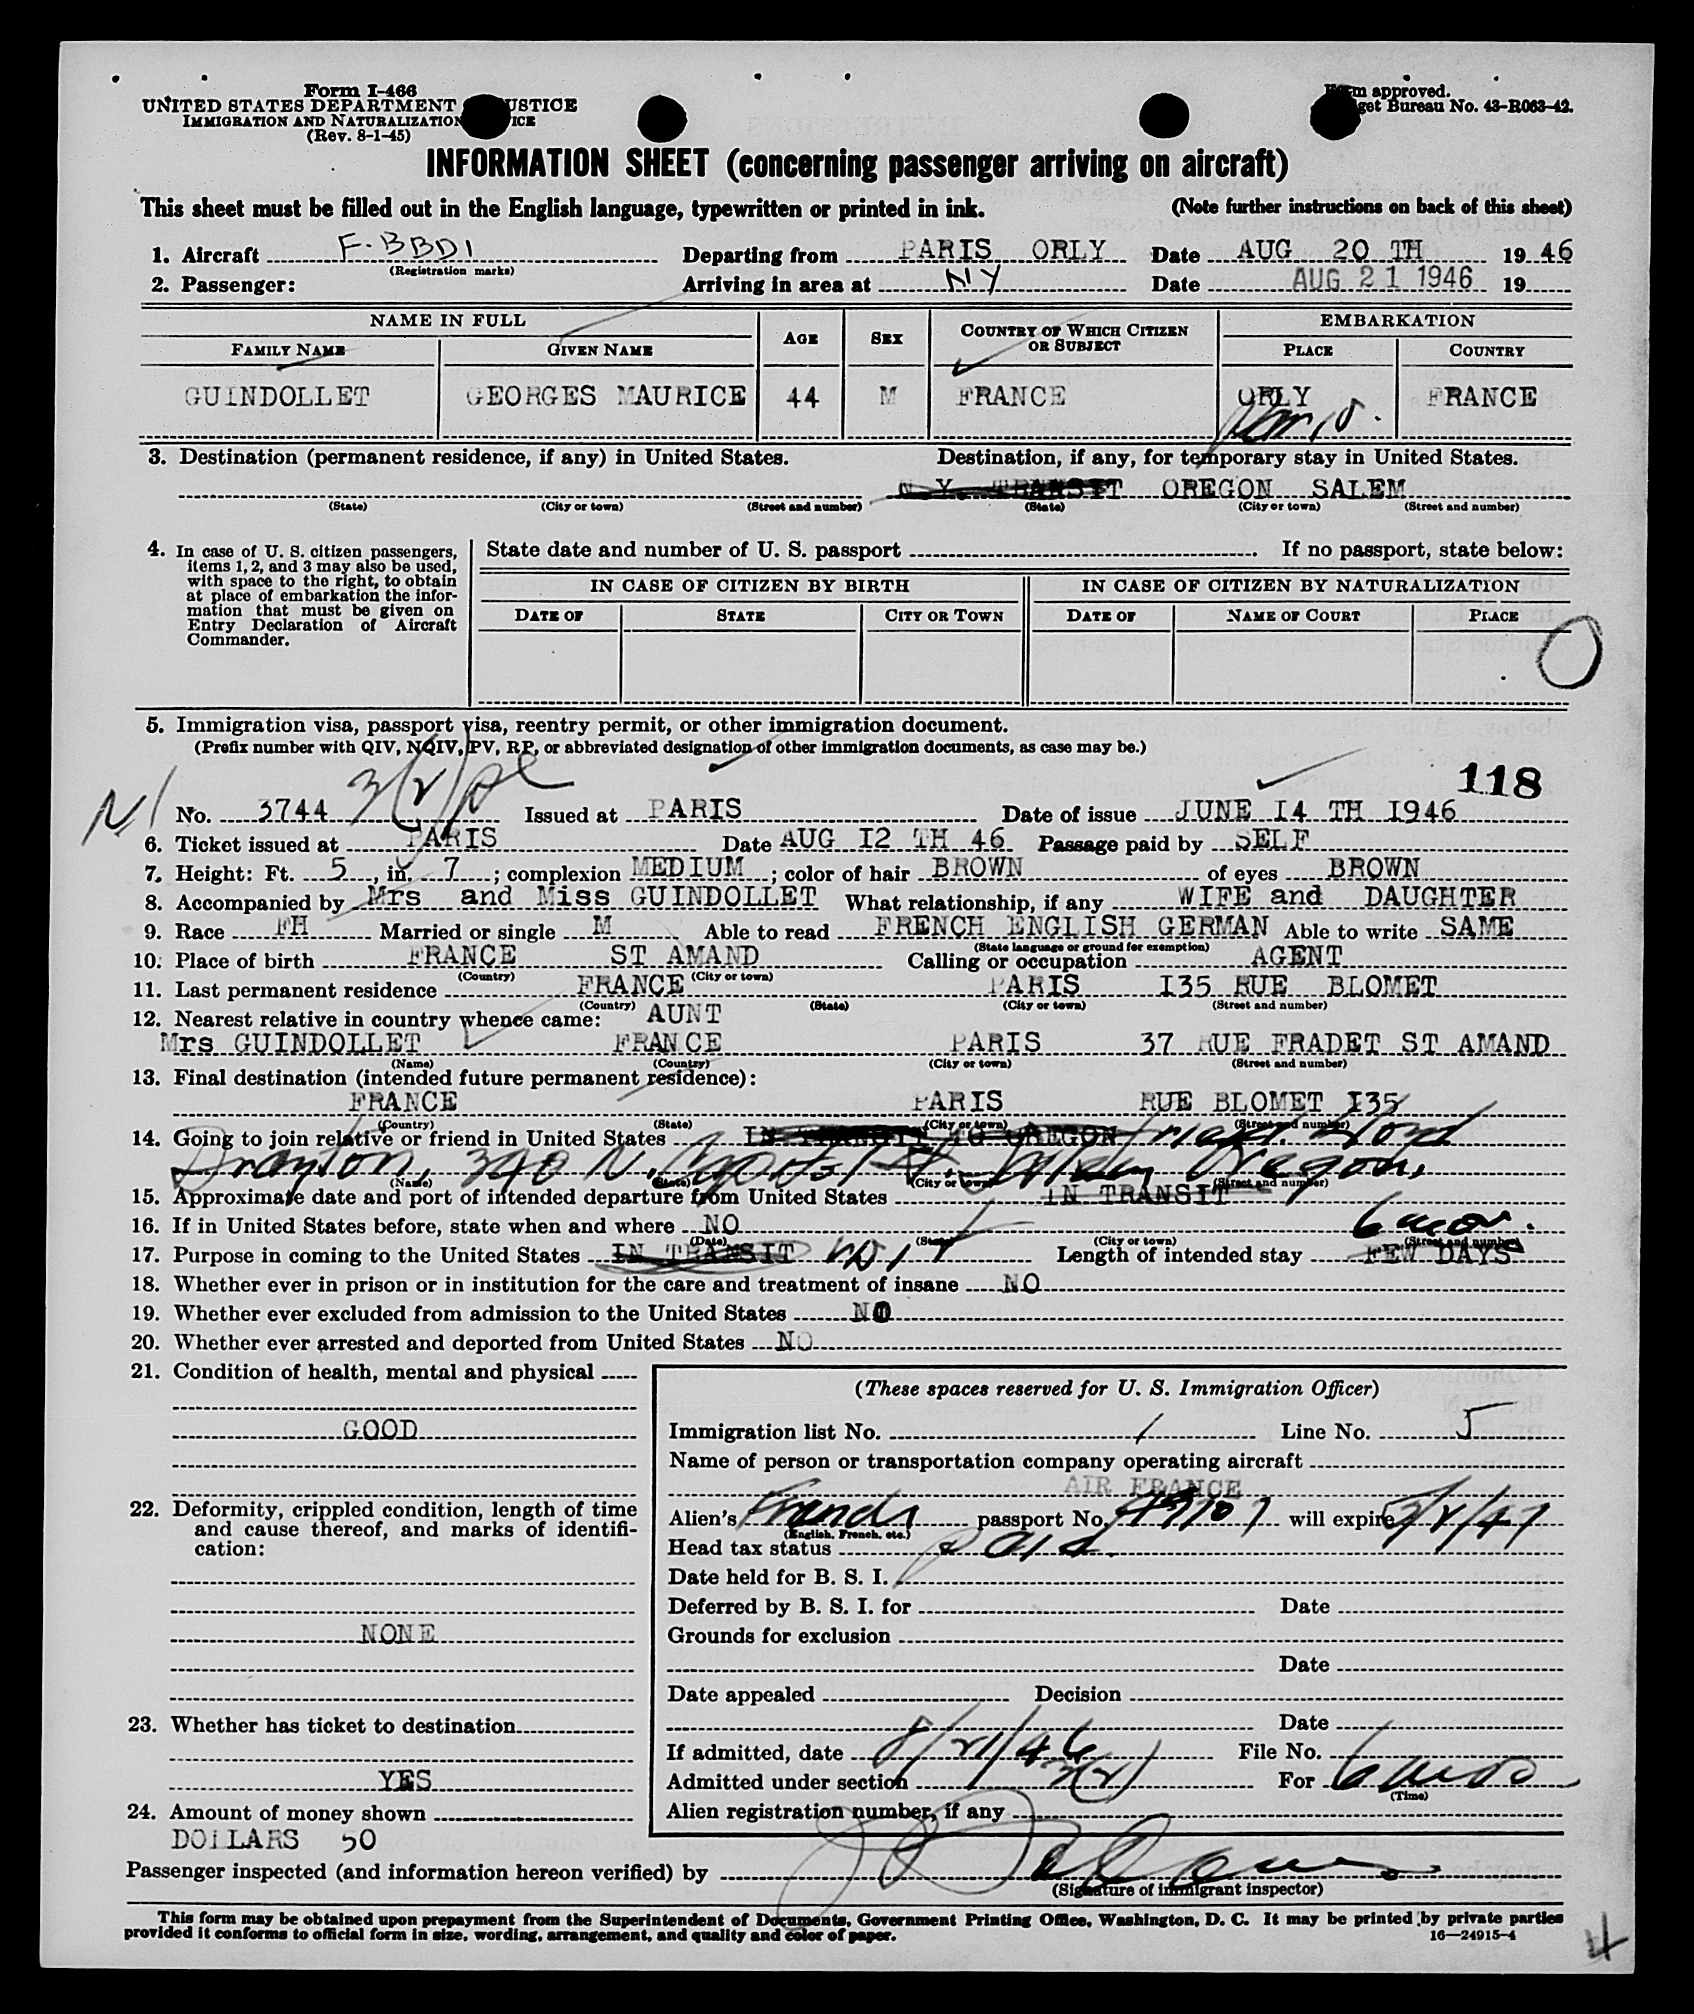 Form I-466
UNITED STATES DEPARTMENT USTICE
IMMIGRATION AND NATURALIZATION ICE
(Rev. 8-1-45)
Form approved.
get Bureau No. 43-R063-42.
INFORMATION SHEET (concerning passenger arriving on aircraft)
This sheet must be filled out in the English language, typewritten or printed in ink. (Note further instructions on back of this sheet)
1. Aircraft F-BBDI Departing from PARIS ORLY Date AUG 20 TH 19 46
(Registration marks)
2. Passenger: Arriving in area at NY Date AUG 21 1946 19
NAME IN FULL AGE SEX COUNTRY OF WHICH CITIZEN OR SUBJECT EMBARKATION
FAMILY NAME GIVEN NAME PLACE COUNTRY
GUINDOLLET GEORGES MAURICE 44 M FRANCE ORLY FRANCE
Paris.
3. Destination (permanent residence, if any) in United States. Destination, if any, for temporary stay in United States.
N.Y. TRANSIT OREGON SALEM
(State) (City or town) (Street and number) (State) (City or town) (Street and number)
4. In case of U. S. citizen passengers, items 1, 2, and 3 may also be used, with space to the right, to obtain at place of embarkation the information that must be given on Entry Declaration of Aircraft Commander.
State date and number of U. S. passport . If no passport, state below:
IN CASE OF CITIZEN BY BIRTH IN CASE OF CITIZEN BY NATURALIZATION
DATE OF STATE CITY OR TOWN DATE OF NAME OF COURT PLACE
5. Immigration visa, passport visa, reentry permit, or other immigration document.
(Prefix number with QIV, NQIV, PV, RP, or abbreviated designation of other immigration documents, as case may be.)
118
3(2)
No. 3744 Issued at PARIS Date of issue JUNE I4 TH I946
6. Ticket issued at PARIS Date AUG I2 TH 46 Passage paid by SELF
7. Height: Ft. 5, in. 7; complexion MEDIUM; color of hair BROWN of eyes BROWN
8. Accompanied by Mrs and Miss GUINDOLLET What relationship, if any WIFE and DAUGHTER
9. Race FH Married or single M Able to read FRENCH ENGLISH GERMAN Able to write SAME
(State language or ground for exemption)
10. Place of birth FRANCE ST AMAND Calling or occupation AGENT
(Country) (City or town)
11. Last permanent residence FRANCE PARIS I35 RUE BLOMET
(Country) (State) (City or town) (Street and number)
12. Nearest relative in country whence came: AUNT
Mrs GUINDOLLET FRANCE PARIS 37 RUE FRADET ST AMAND
(Name) (Country) (City or town) (Street and number)
13. Final destination (intended future permanent residence):
FRANCE PARIS RUE BLOMET I35
(Country) (State) (City or town) (Street and number)
14. Going to join relative or friend in United States IN TRANSIT TO OREGON friend
Drayton, 340 N. Oregon.
(Name) (State) (City or town) (Street and number)
15. Approximate date and port of intended departure from United States IN TRANSIT
16. If in United States before, state when and where NO
(Date) (State) (City or town) (Street and number)
6 mos.
17. Purpose in coming to the United States IN TRANSIT visit Length of intended stay FEW DAYS
18. Whether ever in prison or in institution for the care and treatment of insane NO
19. Whether ever excluded from admission to the United States NO
20. Whether ever arrested and deported from United States NO
21. Condition of health, mental and physical
GOOD
22. Deformity, crippled condition, length of time and cause thereof, and marks of identification:
NONE
23. Whether has ticket to destination
YES
24. Amount of money shown
DOLLARS 50
(These spaces reserved for U. S. Immigration Officer)
Immigration list No. 1 Line No. 5
Name of person or transportation company operating aircraft
AIR FRANCE
Alien's French passport No. 49107 will expire 3/4/47
(English, French, etc.)
Head tax status Paid.
Date held for B. S. I.
Deferred by B. S. I. for Date
Grounds for exclusion
Date
Date appealed Decision
Date
If admitted, date 8/21/46 File No.
Admitted under section 3(2) For 6 mos
(Time)
Alien registration number, if any
Passenger inspected (and information hereon verified) by
(Signature of immigrant inspector)
This form may be obtained upon prepayment from the Superintendent of Documents, Government Printing Office, Washington, D. C. It may be printed by private parties
provided it conforms to official form in size, wording, arrangement, and quality and color of paper. 16—24915-4
4